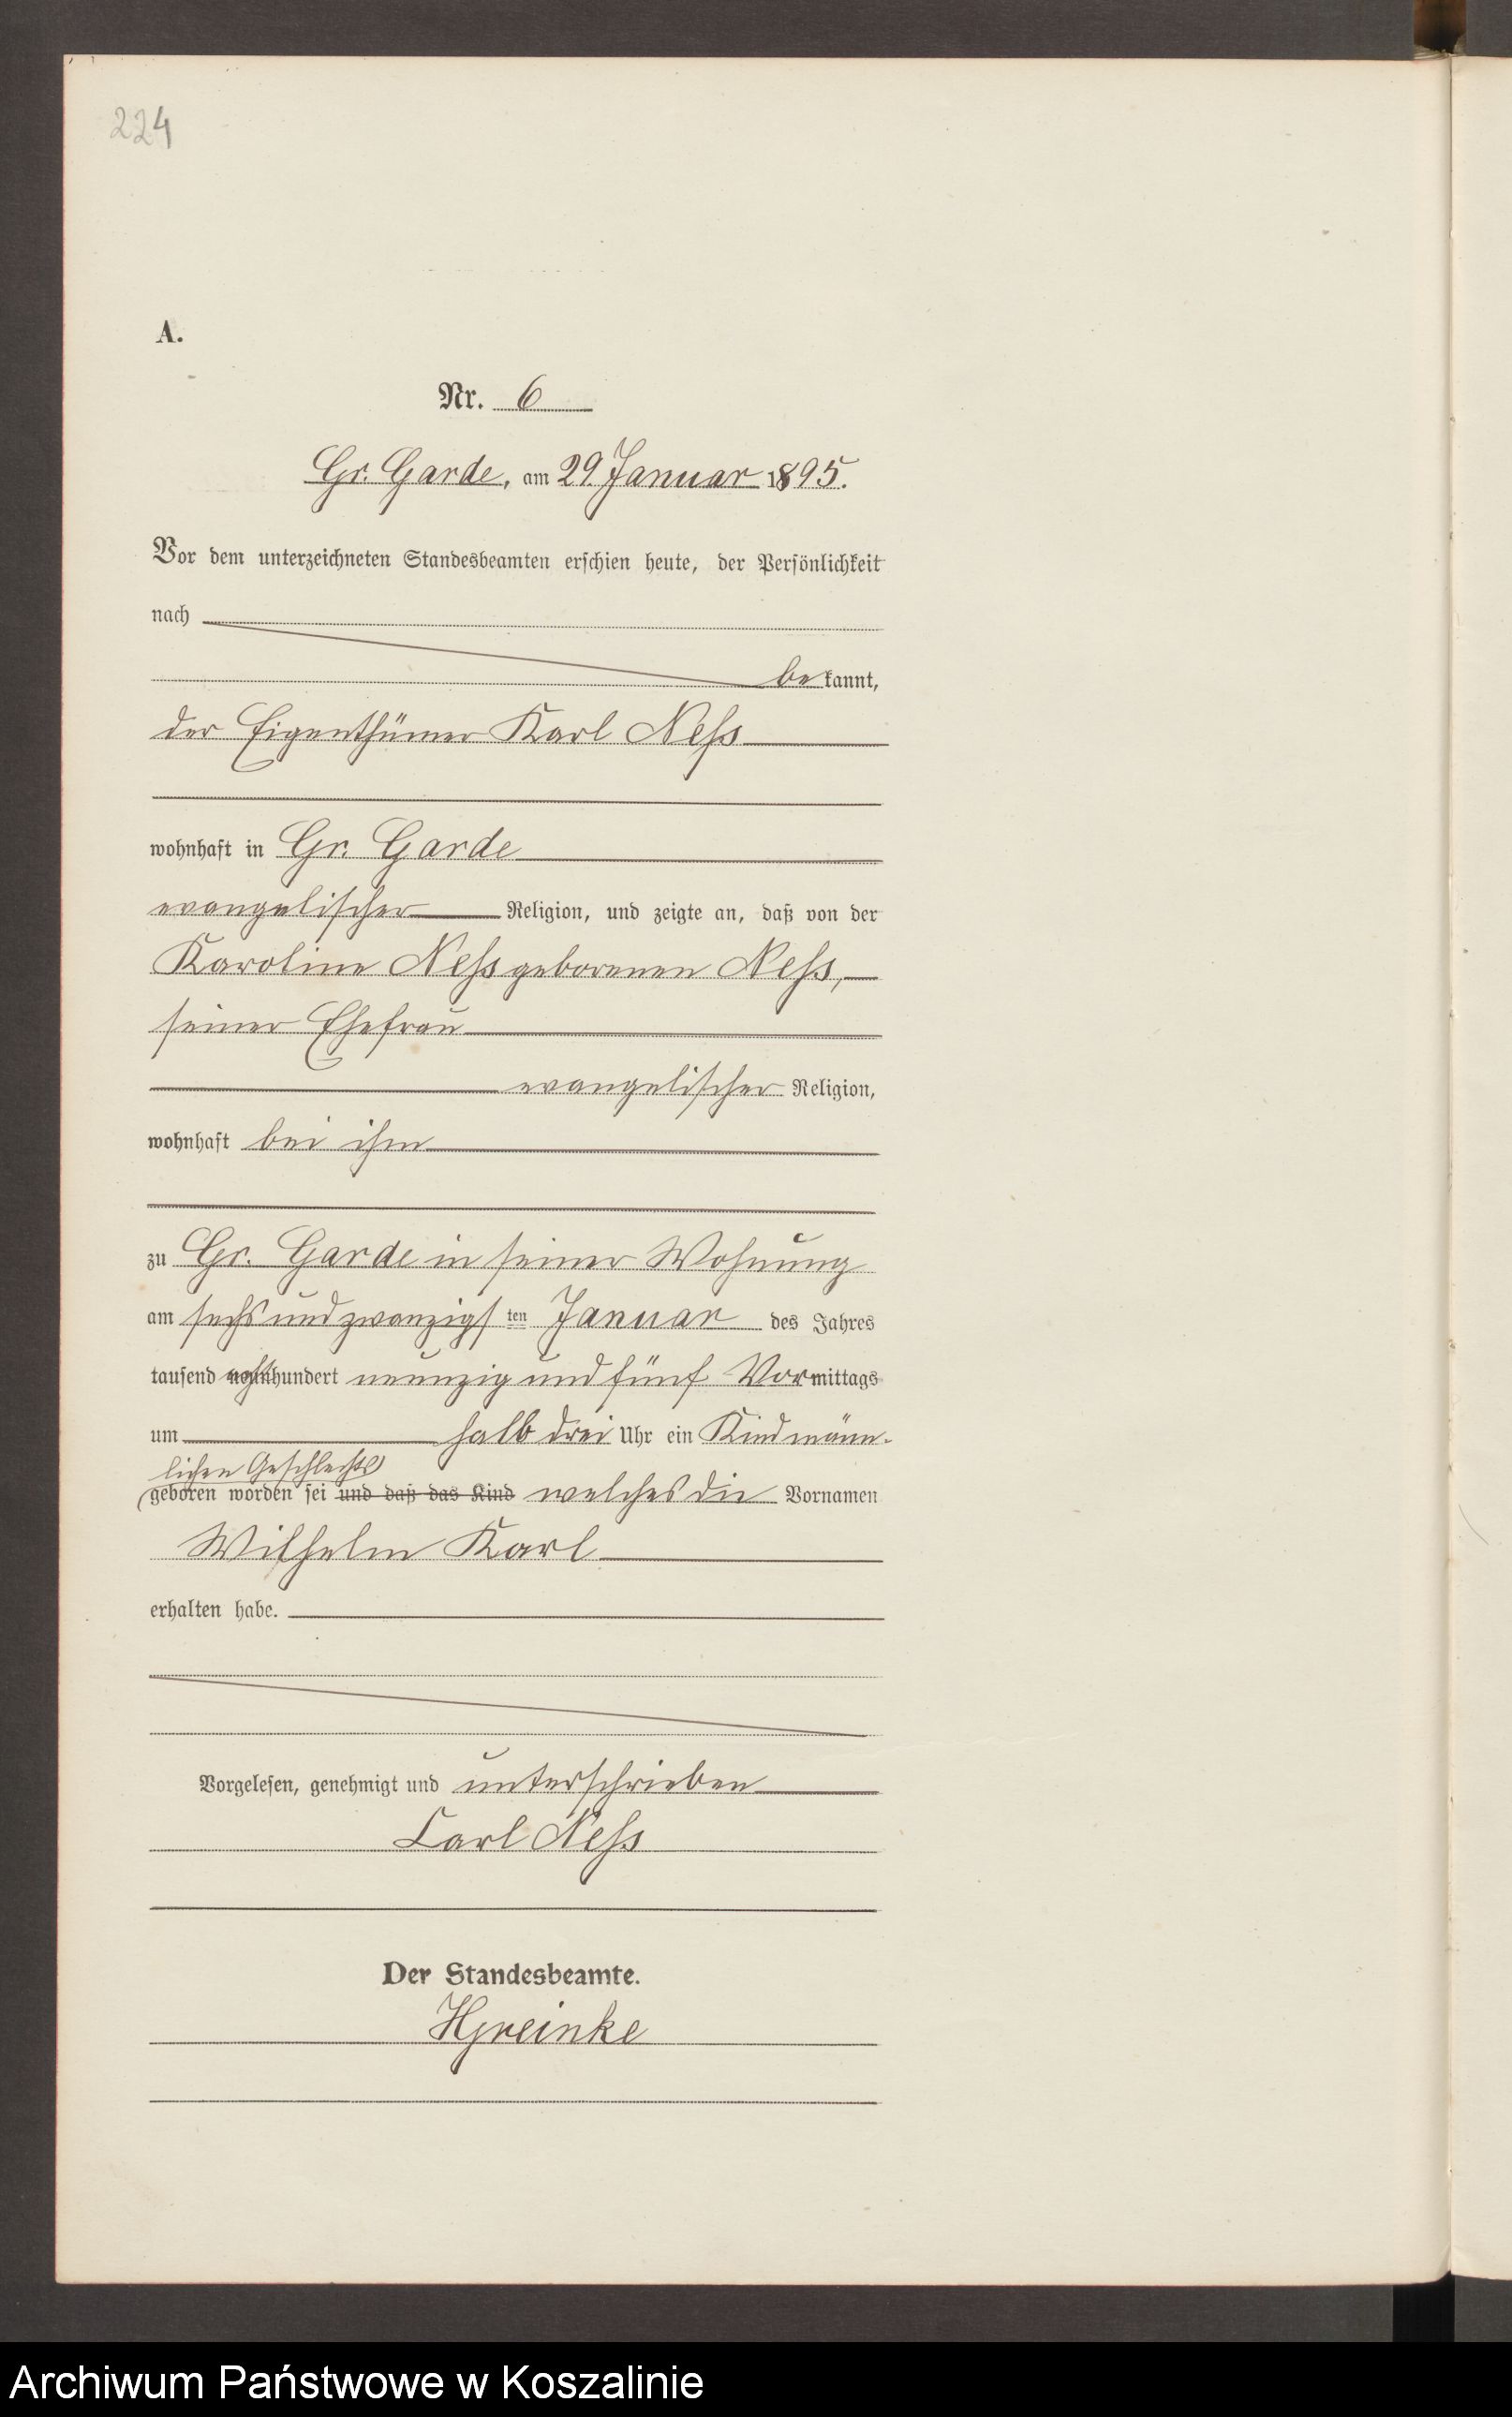 224
A.
Nr. 6
Gr. Garde, am 29. Januar 1895.
Vor dem unterzeichneten Standesbeamten erschien heute, der Persönlichkeit
nach
bekannt,
der Eigenthümer Karl Neß
wohnhaft in Gr. Garde
evangelischer Religion, und zeigte an, daß von der
Karoline Neß geborenen Neß,
seiner Ehefrau
evangelischer Religion,
wohnhaft bei ihm
zu Gr. Garde in seiner Wohnung
am sechs und zwanzigsten Januar des Jahres
tausend achthundert neunzig und fünf Vormittags
um halb drei Uhr ein Kind männ-
lichen Geschlechts
geboren worden sei und daß das Kind welches die Vornamen
Wilhelm Karl
erhalten habe.
Vorgelesen, genehmigt und unterschrieben
Carl Neß
Der Standesbeamte.
Archiwum Państwowe w Koszalinie